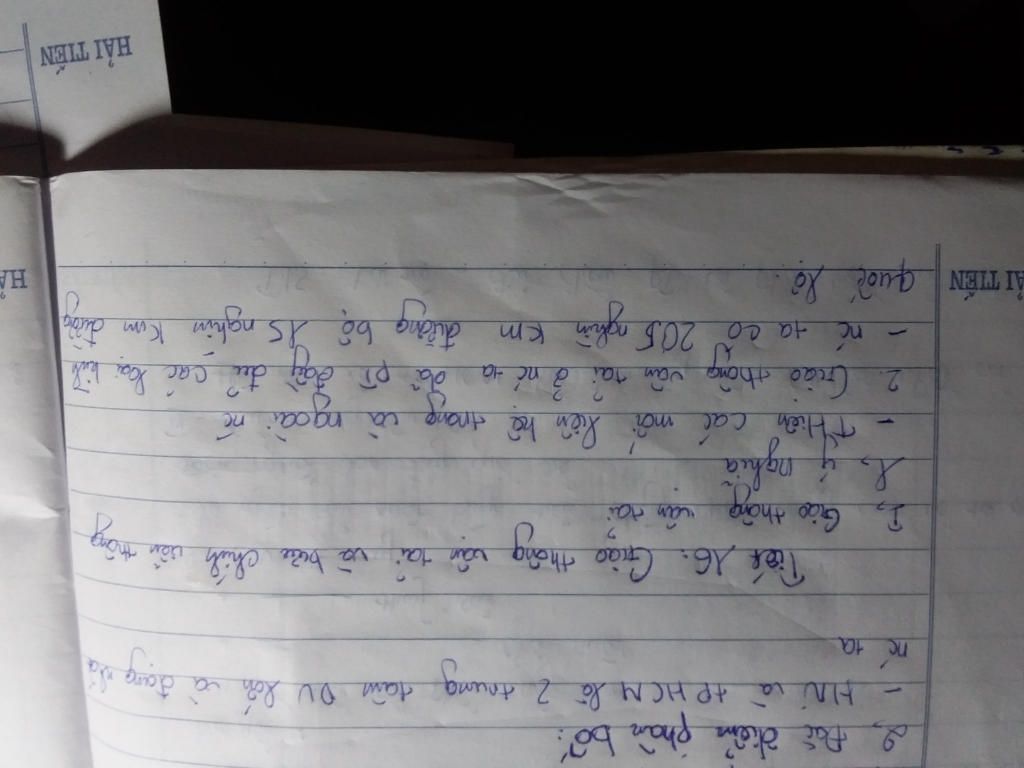 2, Đặc điểm phân bố:
- HN và tp HCM là 2 trung tâm DV lớn và đạng nhất
nc ta
Tiết 16: Giao thông vận tải và bưu chính viễn thông
I, Giao thông vận tải
1, ý nghĩa
- THiện các mối liên hệ trong và ngoài nc
2. Giao thông vận tải ở nc ta đã pt đầy đủ các loại hình
- nc ta có 205 nghìn km đường bộ, 15 nghìn km đường
quốc lộ.
HẢI TIẾN
HẢI TIẾN